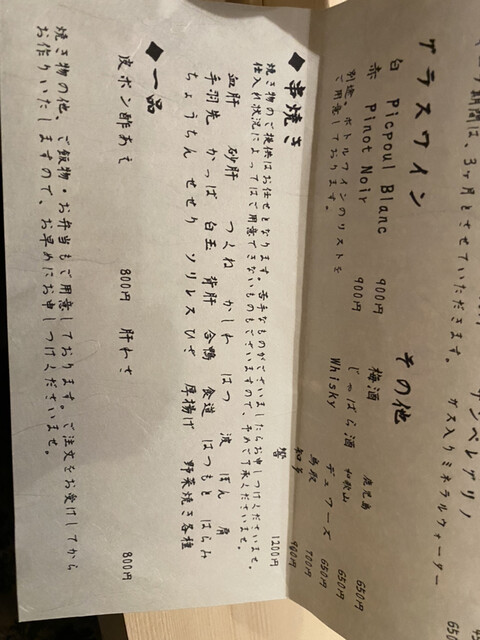 期間は、3ヶ月とさせていただきます。
グラスワイン
白 Picpoul Blanc 900円
赤 Pinot Noir 900円
別途、ボトルワインのリストを
ご用意しております。
ンペレグリノ
ガス入りミネラルウォーター
650
その他
梅酒 鹿児島 650円
じゃばら酒 和歌山 650円
Whisky デュワーズ 650円
鳥取 700円
知多 900円
響 1200円
◆串焼き
焼き物のご提供はお任せとなります。苦手なものがございましたらお申しつけくださいませ。
仕入れ状況によってはご用意できないものもございますので、予めご了承くださいませ。
血肝 砂肝 つくね かしわ はつ 渡 ぼん 肩
手羽先 かっぱ 白玉 背肝 合鴨 食道 はつもと はらみ
ちょうちん せせり ソリレス ひざ 厚揚げ 野菜焼き各種
◆一品
皮ポン酢あえ 800円 肝わさ 800円
焼き物の他、ご飯物・お弁当もご用意しております。ご注文をお受けしてから
お作りいたしますので、お早めにお申しつけくださいませ。